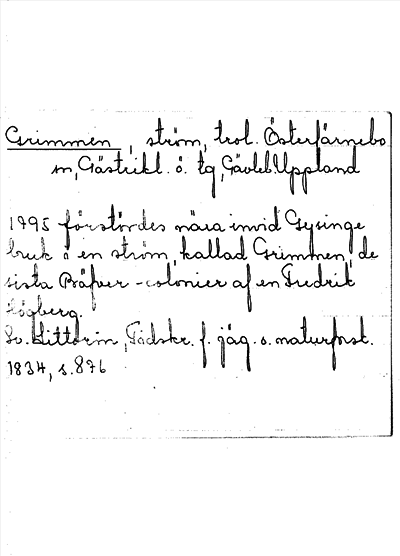 Grimmen, ström, trol. Österfärnebo
sn, Gästrikl. o. tg, Gävleb. Uppland
1795 förstördes nära invid Gysinge
bruk i en ström, kallad Grimmen, de
sista Bäfver-colonier af en Fredrik
Högberg.
Sv. Littorin, Tidskr. f. jäg. o. naturforst.
1834, s. 876